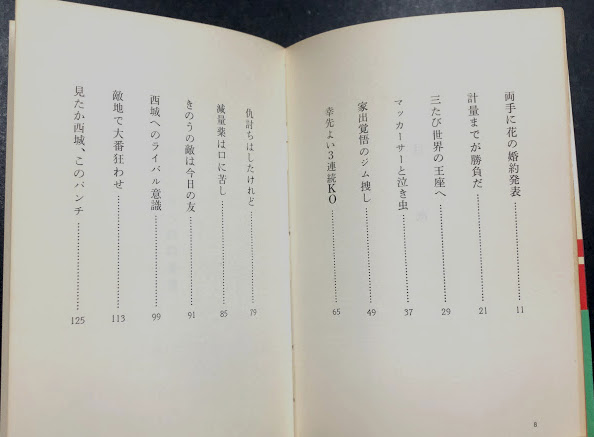 両手に花の婚約発表…………11
計量までが勝負だ…………21
三たび世界の王座へ…………29
マッカーサーと泣き虫…………37
家出覚悟のジム捜し…………49
幸先よい3連続KO…………65
8
仇討ちはしたけれど…………79
減量薬は口に苦し…………85
きのうの敵は今日の友…………91
西城へのライバル意識…………99
敵地で大番狂わせ…………113
見たか西城、このパンチ…………125